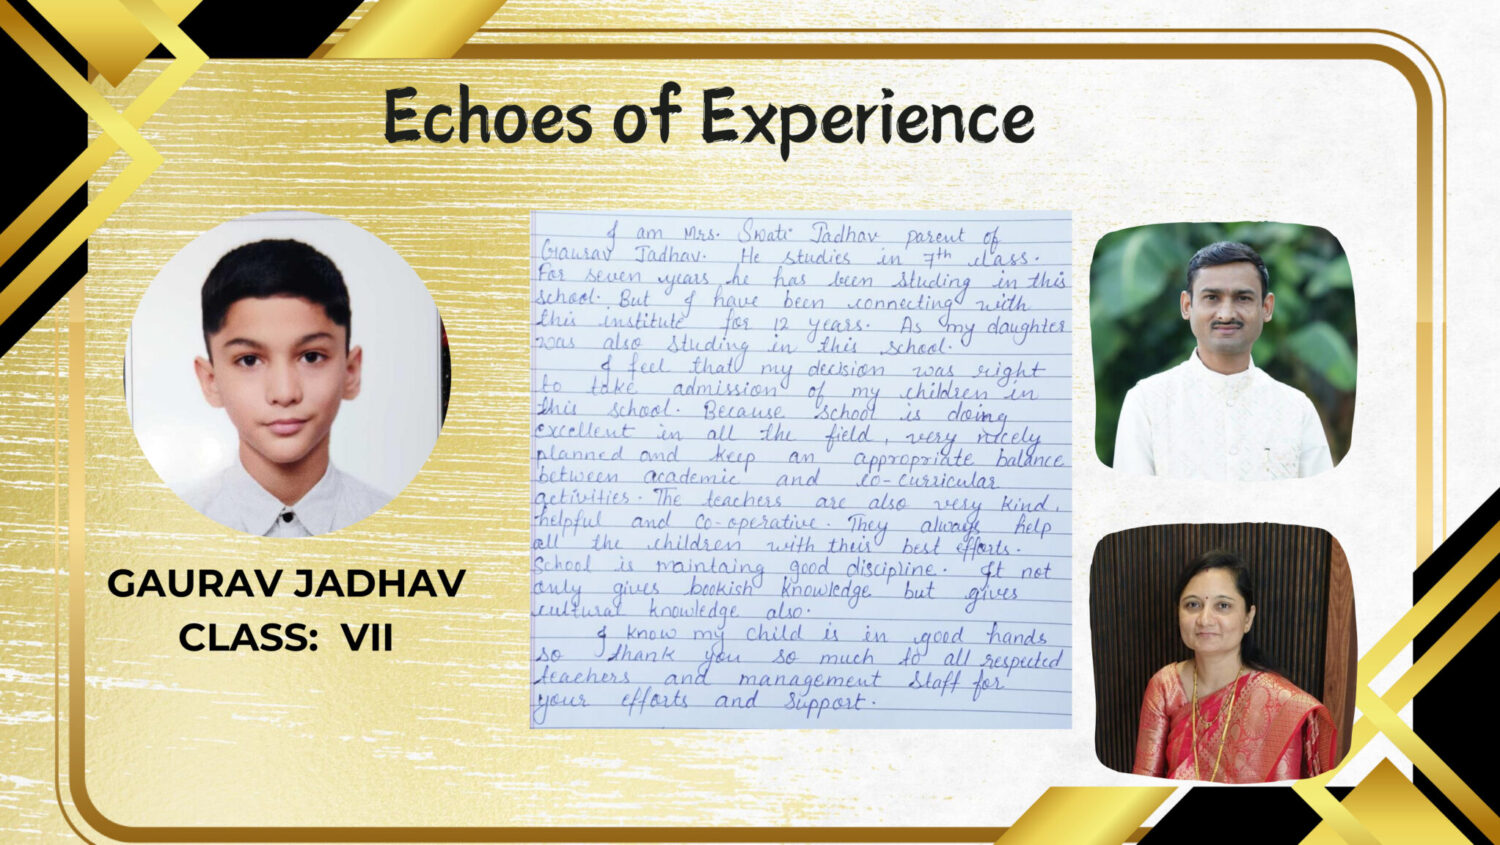 Echoes of Experience
I am Mrs. Swati Jadhav parent of
Gaurav Jadhav. He studies in 7th class.
For seven years he has been studing in this
school. But I have been connecting with
this institute for 12 years. As my daughter
was also studing in this school.
I feel that my decision was right
to take admission of my children in
this school. Because school is doing
excellent in all the field, very nicely
planned and keep an appropriate balance
between academic and co-curricular
activities. The teachers are also very kind,
helpful and co-operative. They always help
all the children with their best efforts.
School is maintaing good discipline. It not
only gives bookish knowledge but gives
cultural knowledge also.
I know my child is in good hands
so thank you so much to all respected
teachers and management staff for
your efforts and support.
GAURAV JADHAV
CLASS: VII